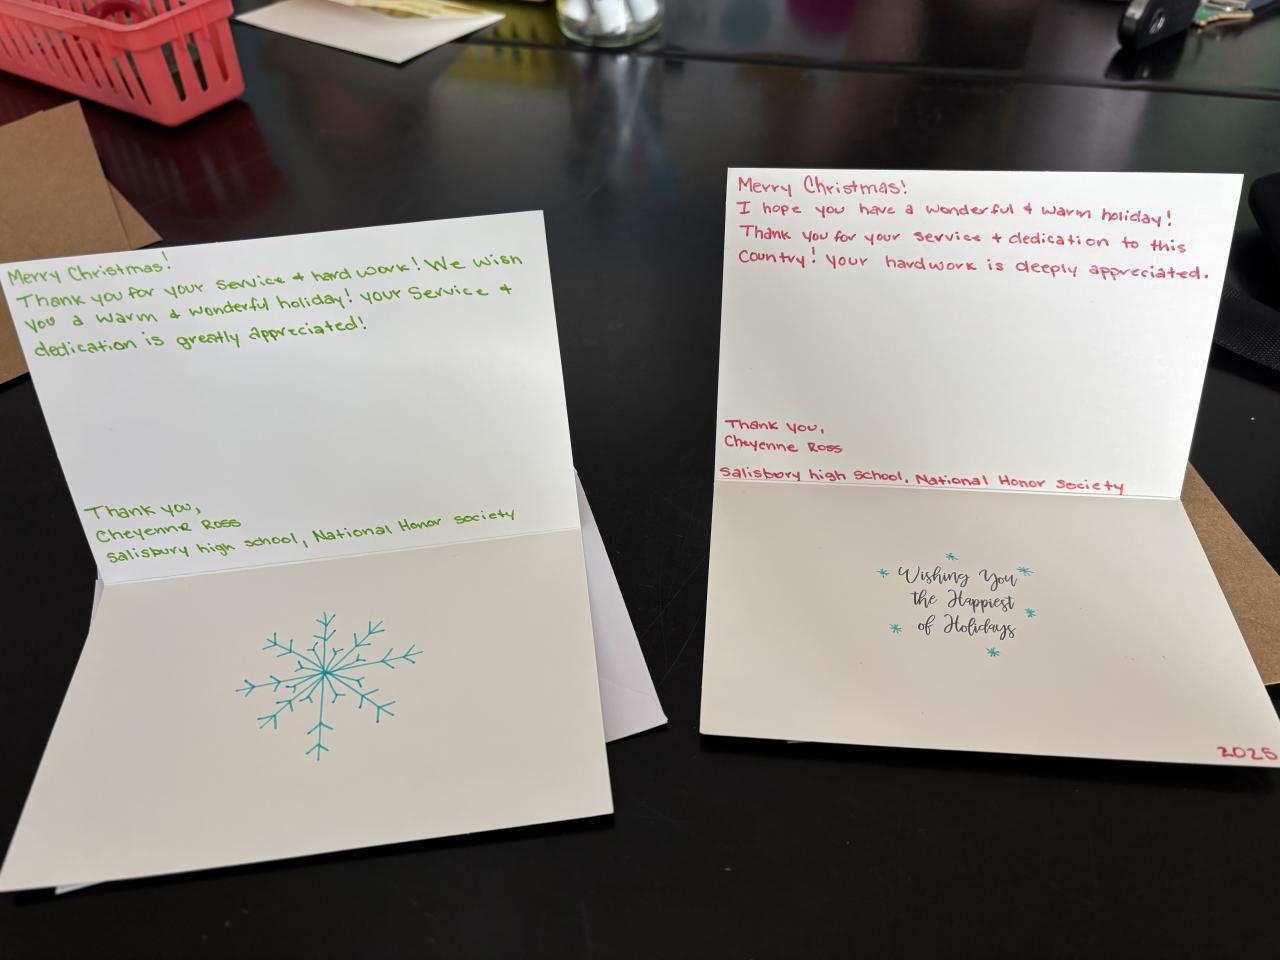 Merry Christmas!
Thank you for your service + hard work! We wish
you a warm & wonderful holiday! your Service +
dedication is greatly appreciated!
Thank you,
Cheyenne Ross
Salisbury high school, National Honor society
Merry Christmas!
I hope you have a wonderful & warm holiday!
Thank you for your service + dedication to this
Country! Your hardwork is deeply appreciated.
Thank you,
Cheyenne Ross
Salisbury high School, National Honor society
Wishing You
the Happiest
of Holidays
2025